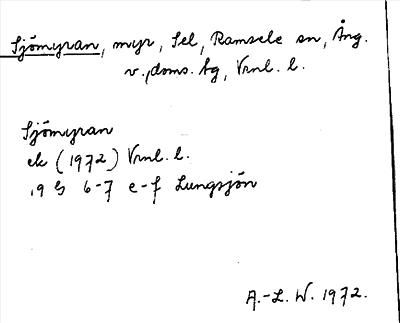 Sjömyran, myr, Sel, Ramsele sn, Ång.
v., doms. bg, Vrnl. l.
Sjömyran
ek (1972) Vrnl. l.
19 G 6-7 e-f Lungsjön
A.-L. W. 1972.